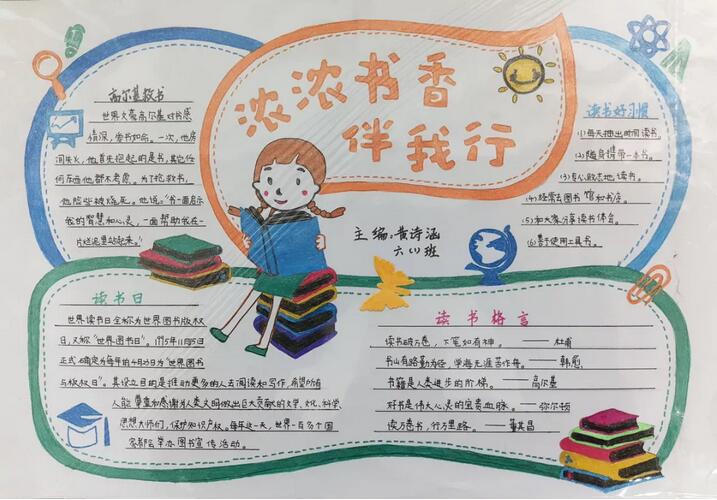 浓浓书香
伴我行
主编：黄诗涵
六(1)班
高尔基救书
世界文豪高尔基对书感
情深，爱书如命。一次，他房
间失火，他首先抱起的是书，其它任
何东西他都不考虑。为了抢救书，
他险些被烧死。他说：“书一面启示
我的智慧和心灵，一面帮助我在一
片烂泥里站起来。”
读书好习惯
(1)每天抽出时间读书。
(2)随身携带一本书。
(3)专心致志地读书。
(4)经常去图书馆和书店。
(5)和大家分享读书体会。
(6)善于使用工具书。
读书日
世界读书日全称为世界图书版权
日，又称“世界图书日”。1995年11月15日
正式确定为每年的4月23日为“世界图书
与版权日”。其设立目的是推动更多的人去阅读和写作，希望所有
人能尊重和感谢为人类文明做出巨大贡献的文学、文化、科学、
思想大师们，保护知识产权。每年这一天，世界一百多个国
家都会举办图书宣传活动。
读书格言
读书破万卷，下笔如有神。——杜甫
书山有路勤为径，学海无涯苦作舟。——韩愈
书籍是人类进步的阶梯。——高尔基
好书是伟大心灵的宝贵血脉。——弥尔顿
读万卷书，行万里路。——董其昌